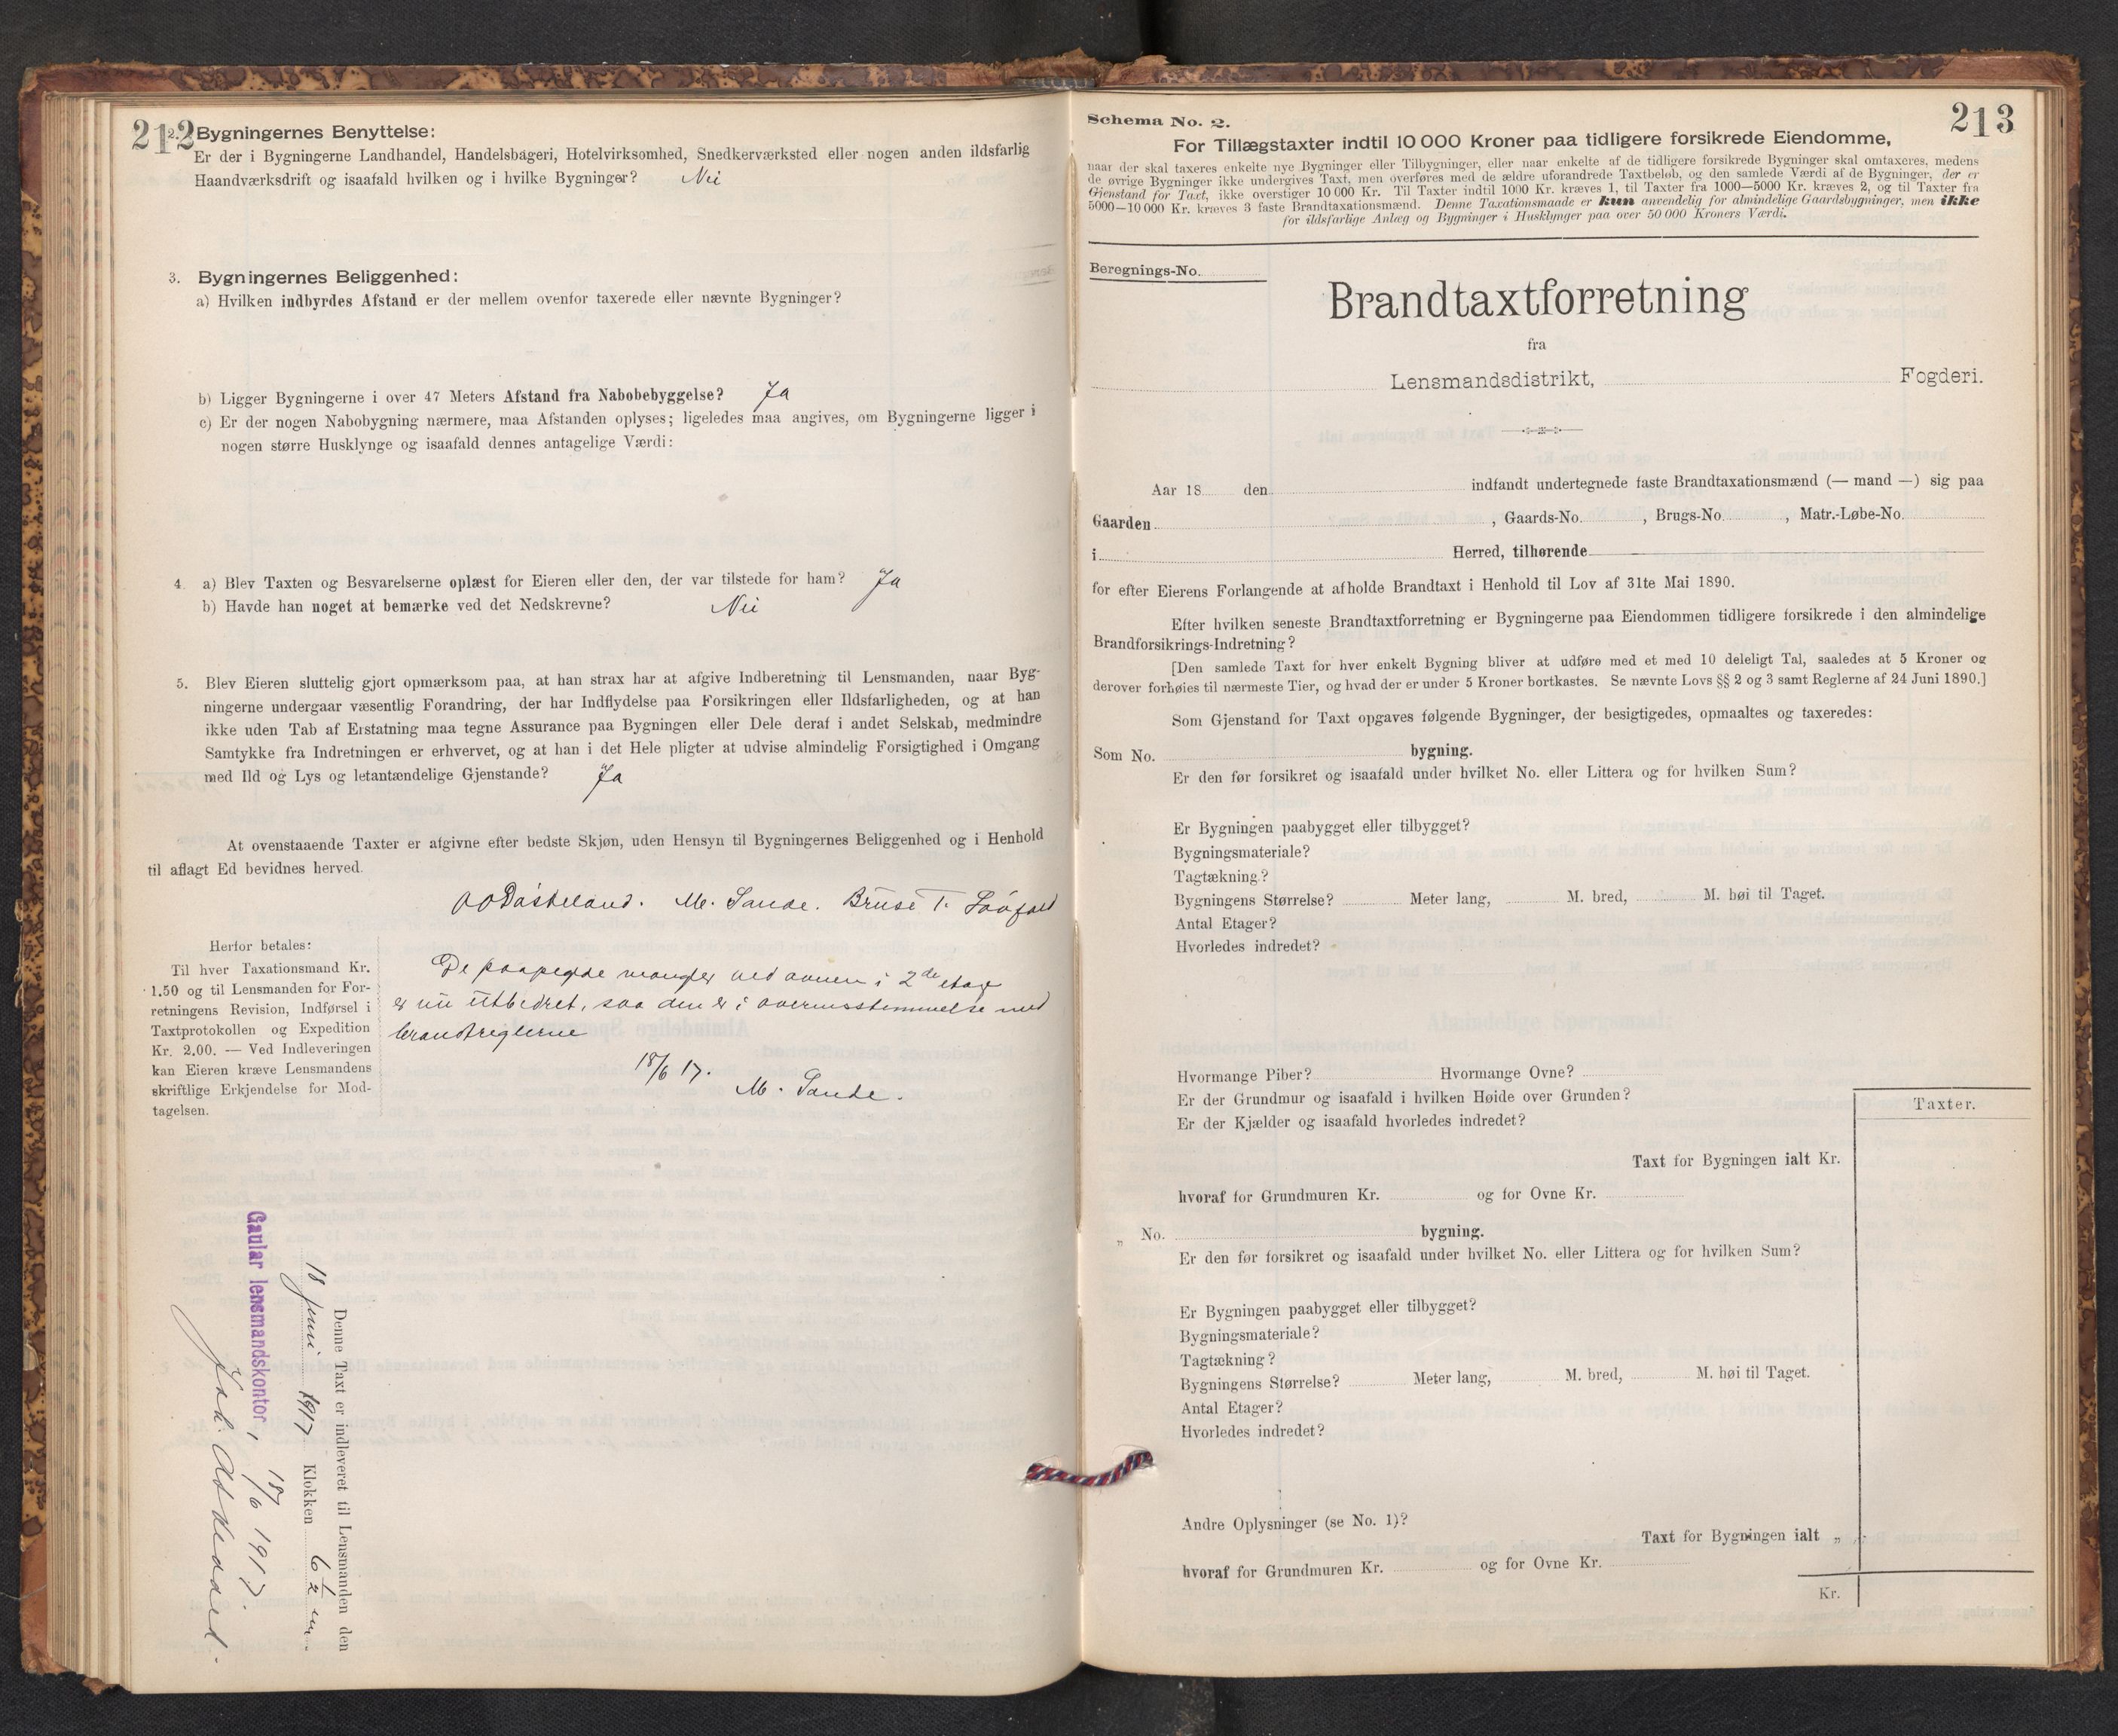 212
2. Bygningernes Benyttelse:
Er der i Bygningerne Landhandel, Handelsbageri, Hotelvirksomhed, Snedkerværksted eller nogen anden ildsfarlig
Haandværksdrift og isaafald hvilken og i hvilke Bygninger? Nei
3. Bygningernes Beliggenhed:
a) Hvilken indbyrdes Afstand er der mellem ovenfor taxerede eller nævnte Bygninger?
b) Ligger Bygningerne i over 47 Meters Afstand fra Nabobebyggelse? Ja
c) Er der nogen Nabobygning nærmere, maa Afstanden oplyses; ligeledes maa angives, om Bygningerne ligger i
nogen større Husklynge og isaafald dennes antagelige Værdi:
4. a) Blev Taxten og Besvarelserne oplæst for Eieren eller den, der var tilstede for ham? Ja
b) Havde han noget at bemærke ved det Nedskrevne? Nei
5. Blev Eieren sluttelig gjort opmærksom paa, at han strax har at afgive Indberetning til Lensmanden, naar Byg-
ningerne undergaar væsentlig Forandring, der har Indflydelse paa Forsikringen eller Ildsfarligheden, og at han
ikke uden Tab af Erstatning maa tegne Assurance paa Bygningen eller Dele deraf i andet Selskab, medmindre
Samtykke fra Indretningen er erhvervet, og at han i det Hele pligter at udvise almindelig Forsigtighed i Omgang
med Ild og Lys og letantændelige Gjenstande? Ja
At ovenstaaende Taxter er afgivne efter bedste Skjøn, uden Hensyn til Bygningernes Beliggenhed og i Henhold
til aflagt Ed bevidnes herved.
M. Sande. Bruse T.
Herfor betales:
Til hver Taxationsmand Kr.
1.50 og til Lensmanden for For-
retningens Revision, Indførsel i
Taxtprotokollen og Expedition
Kr. 2.00. — Ved Indleveringen
kan Eieren kræve Lensmandens
skriftlige Erkjendelse for Mod-
tagelsen.
De paapegde mangler ved ovnen i 2de etage
er nu utbedret, saa den er i overensstemmelse med
brandreglerne
18/6 17.
M. Sande.
Denne Taxt er indleveret til Lensmanden den
18 juni 1917 Klokken 6 1/2 em.
Gaular lensmandskontor, 18/6 1917.
213
Schema No. 2.
For Tillægstaxter indtil 10 000 Kroner paa tidligere forsikrede Eiendomme,
naar der skal taxeres enkelte nye Bygninger eller Tilbygninger, eller naar enkelte af de tidligere forsikrede Bygninger skal omtaxeres, medens
de øvrige Bygninger ikke undergives Taxt, men overføres med de ældre uforandrede Taxtbeløb, og den samlede Værdi af de Bygninger, der er
Gjenstand for Taxt, ikke overstiger 10 000 Kr. Til Taxter indtil 1000 Kr. kræves 1, til Taxter fra 1000—5000 Kr. kræves 2, og til Taxter fra
5000—10 000 Kr. kræves 3 faste Brandtaxationsmænd. Denne Taxationsmaade er kun anvendelig for almindelige Gaardsbygninger, men ikke
for ildsfarlige Anlæg og Bygninger i Husklynger paa over 50 000 Kroners Værdi.
Beregnings-No.
Brandtaxtforretning
fra
Lensmandsdistrikt, Fogderi.
Aar 18 den indfandt undertegnede faste Brandtaxationsmænd (— mand —) sig paa
Gaarden , Gaards-No. , Brugs-No. , Matr.-Løbe-No.
i Herred, tilhørende
for efter Eierens Forlangende at afholde Brandtaxt i Henhold til Lov af 31te Mai 1890.
Efter hvilken seneste Brandtaxtforretning er Bygningerne paa Eiendommen tidligere forsikrede i den almindelige
Brandforsikrings-Indretning?
[Den samlede Taxt for hver enkelt Bygning bliver at udføre med et med 10 deleligt Tal, saaledes at 5 Kroner og
derover forhøies til nærmeste Tier, og hvad der er under 5 Kroner bortkastes. Se nævnte Lovs §§ 2 og 3 samt Reglerne af 24 Juni 1890.]
Som Gjenstand for Taxt opgaves følgende Bygninger, der besigtigedes, opmaaltes og taxeredes:
Som No. bygning.
Er den før forsikret og isaafald under hvilket No. eller Littera og for hvilken Sum?
Er Bygningen paabygget eller tilbygget?
Bygningsmateriale?
Tagtækning?
Bygningens Størrelse? Meter lang, M. bred, M. høi til Taget.
Antal Etager?
Hvorledes indredet?
Hvormange Piber? Hvormange Ovne?
Er der Grundmur og isaafald i hvilken Høide over Grunden?
Er der Kjælder og isaafald hvorledes indredet?
Taxter.
Taxt for Bygningen ialt Kr.
hvoraf for Grundmuren Kr. og for Ovne Kr.
„ No. bygning.
Er den før forsikret og isaafald under hvilket No. eller Littera og for hvilken Sum?
Er Bygningen paabygget eller tilbygget?
Bygningsmateriale?
Tagtækning?
Bygningens Størrelse? Meter lang, M. bred, M. høi til Taget.
Antal Etager?
Hvorledes indredet?
Andre Oplysninger (se No. 1)?
Taxt for Bygningen ialt „
hvoraf for Grundmuren Kr. og for Ovne Kr.
Kr.